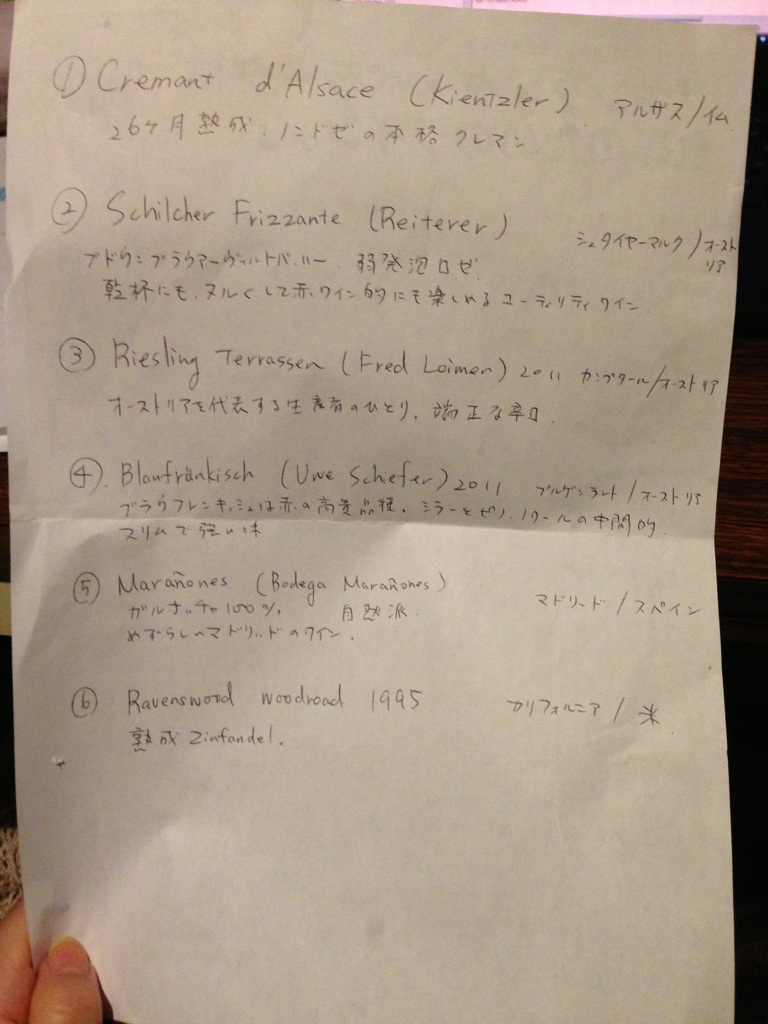 ① Cremant d'Alsace (Kientzler) アルザス/仏
26ヶ月熟成. ノンドゼの本格クレマン
② Schilcher Frizzante (Reiterer) シュタイヤーマルク/オーストリア
ブドウ:ブラウアーヴィルトバッハー. 弱発泡ロゼ.
乾杯にも、ヌルくして赤ワイン的にも楽しめるユーティリティワイン.
③ Riesling Terrassen (Fred Loimer) 2011 カンプタール/オーストリア
オーストリアを代表する生産者のひとり. 端正な辛口.
④. Blaufränkisch (Uwe Schiefer) 2011 ブルゲンラント/オーストリア
ブラウフレンキッシュは赤の高貴品種. シラーとピノ・ノワールの中間的
スリムで強い味
⑤ Marañones (Bodega Marañones) マドリード/スペイン
ガルナッチャ100%. 自然派.
めずらしいマドリッドのワイン.
⑥ Ravenswood woodroad 1995 カリフォルニア/米
熟成 Zinfandel.